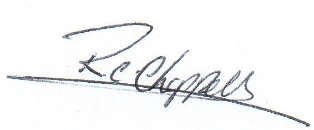 R C Chappell